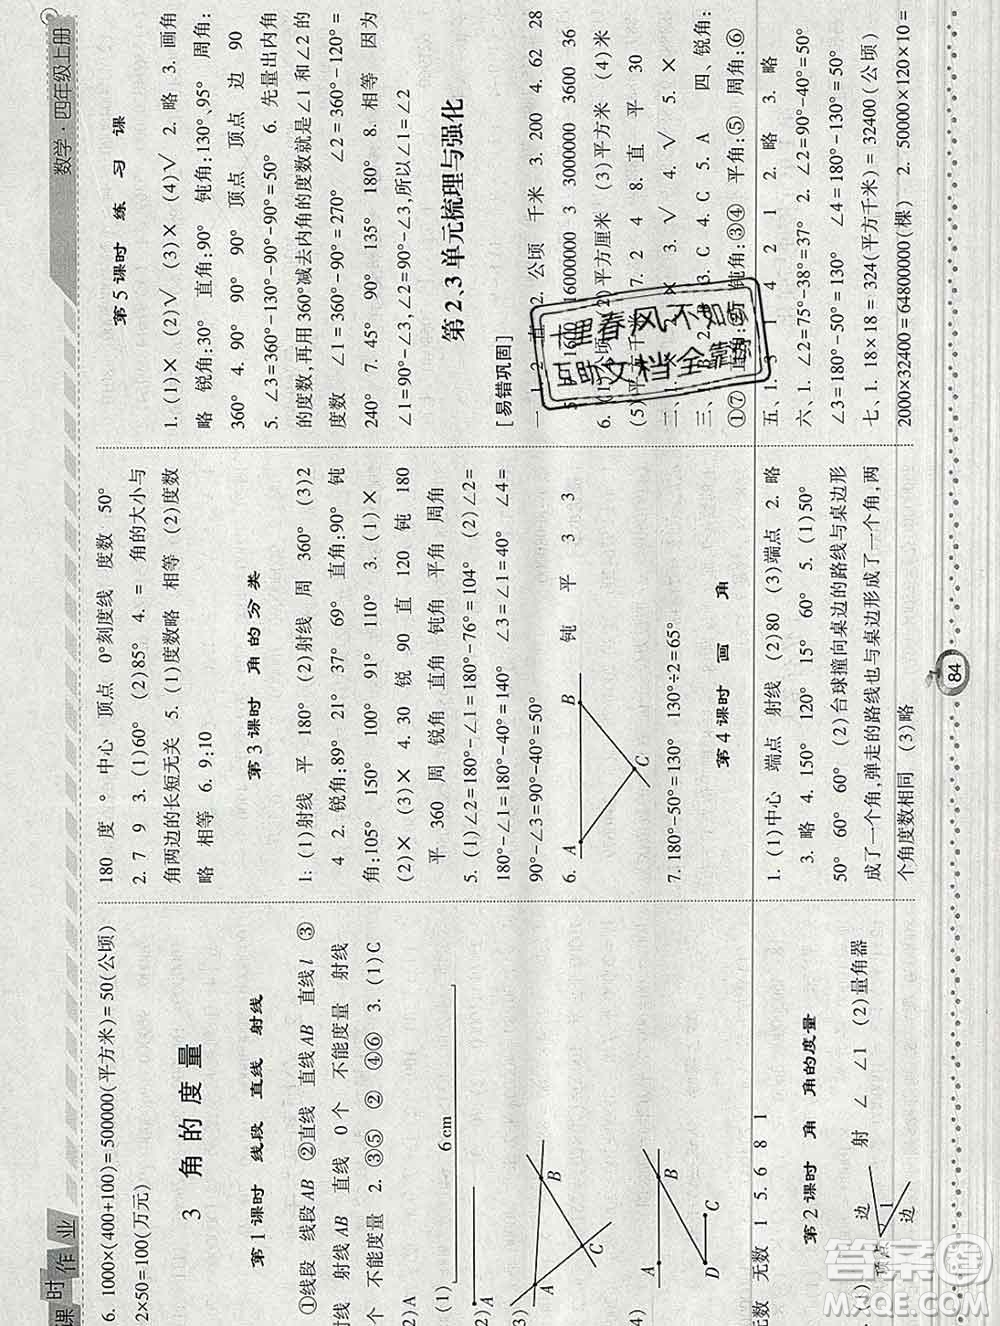 课时作业
数学·四年级上册
6. 1000×(400+100)=500000(平方米)=50(公顷)
2×50=100(万元)
3 角的度量
第1课时 线段 直线 射线
①线段 线段AB ②直线 直线AB 直线l ③
射线 射线AB 直线 0个 不能度量 射线
个 不能度量 2. ③⑤ ② ④⑥ 3. (1)C
2)A
(1) 6 cm
3) A B C
4) A B D C
无数 无数 1 5. 6 8 1
第2课时 角 角的度量
1. (1) 边 顶点 1 边 射 ∠ ∠1 (2)量角器
180 度 ° 中心 顶点 0°刻度线 度数 50°
2. 7 9 3. (1)60° (2)85° 4. = 角的大小与
角两边的长短无关 5. (1)度数略 相等 (2)度数
略 相等 6. 9:10
第3课时 角的分类
1. (1)射线 平 180° (2)射线 周 360° (3)2
4 2. 锐角:89° 21° 37° 69° 直角:90° 钝
角:105° 150° 100° 91° 110° 3. (1)×
(2)× (3)× 4. 30 锐 90 直 120 钝 180
平 360 周 锐角 直角 钝角 平角 周角
5. (1)∠2=180°-∠1=180°-76°=104° (2)∠2=
180°-∠1=180°-40°=140° ∠3=∠1=40° ∠4=
90°-∠3=90°-40°=50°
6. A B C 钝 平 3 3
7. 180°-50°=130° 130°÷2=65°
第4课时 画角
1. (1)中心 端点 射线 (2)80 (3)端点 2. 略
3. 略 4. 150° 120° 15° 60° 5. (1)50°
50° 60° 60° (2)台球撞向桌边的路线与桌边形
成了一个角,弹走的路线也与桌边形成了一个角,两
个角度数相同 (3)略
第5课时 练习课
1. (1)× (2)√ (3)× (4)√ 2. 略 3. 画角
略 锐角:30° 直角:90° 钝角:130°、95° 周角:
360° 4. 90° 90° 90° 顶点 顶点 边 90
5. ∠3=360°-130°-90°-90°=50° 6. 先量出内角
的度数,再用360°减去内角的度数就是∠1和∠2的
度数 ∠1=360°-90°=270° ∠2=360°-120°=
240° 7. 45° 90° 135° 180° 8. 相等 因为
∠1=90°-∠3,∠2=90°-∠3,所以∠1=∠2
第2、3单元梳理与强化
[易错巩固]
一、1. 2. 公顷 千米 3. 200 4. 62 28
5. 1600 16000000 3 3000000 3600 36
6. (2)平方厘米 (3)平方米 (4)米
(5)平方千米 7. 2 4 8. 直 平 30
二、× 3. √ 4. √ 5. ×
三、3. C 4. C 5. A 四、锐角:
①⑦ 直角: 钝角:③④ 平角:⑤ 周角:⑥
五、1. 3 1 4 2 1 2. 略 3. 略
六、1. ∠2=75°-38°=37° 2. ∠2=90°-40°=50°
∠3=180°-50°=130° ∠4=180°-130°=50°
七、1. 18×18=324(平方千米)=32400(公顷)
2000×32400=64800000(棵) 2. 50000×120×10=
84
十里春风不如
互助文档全靠
答案圈
MXQE.COM